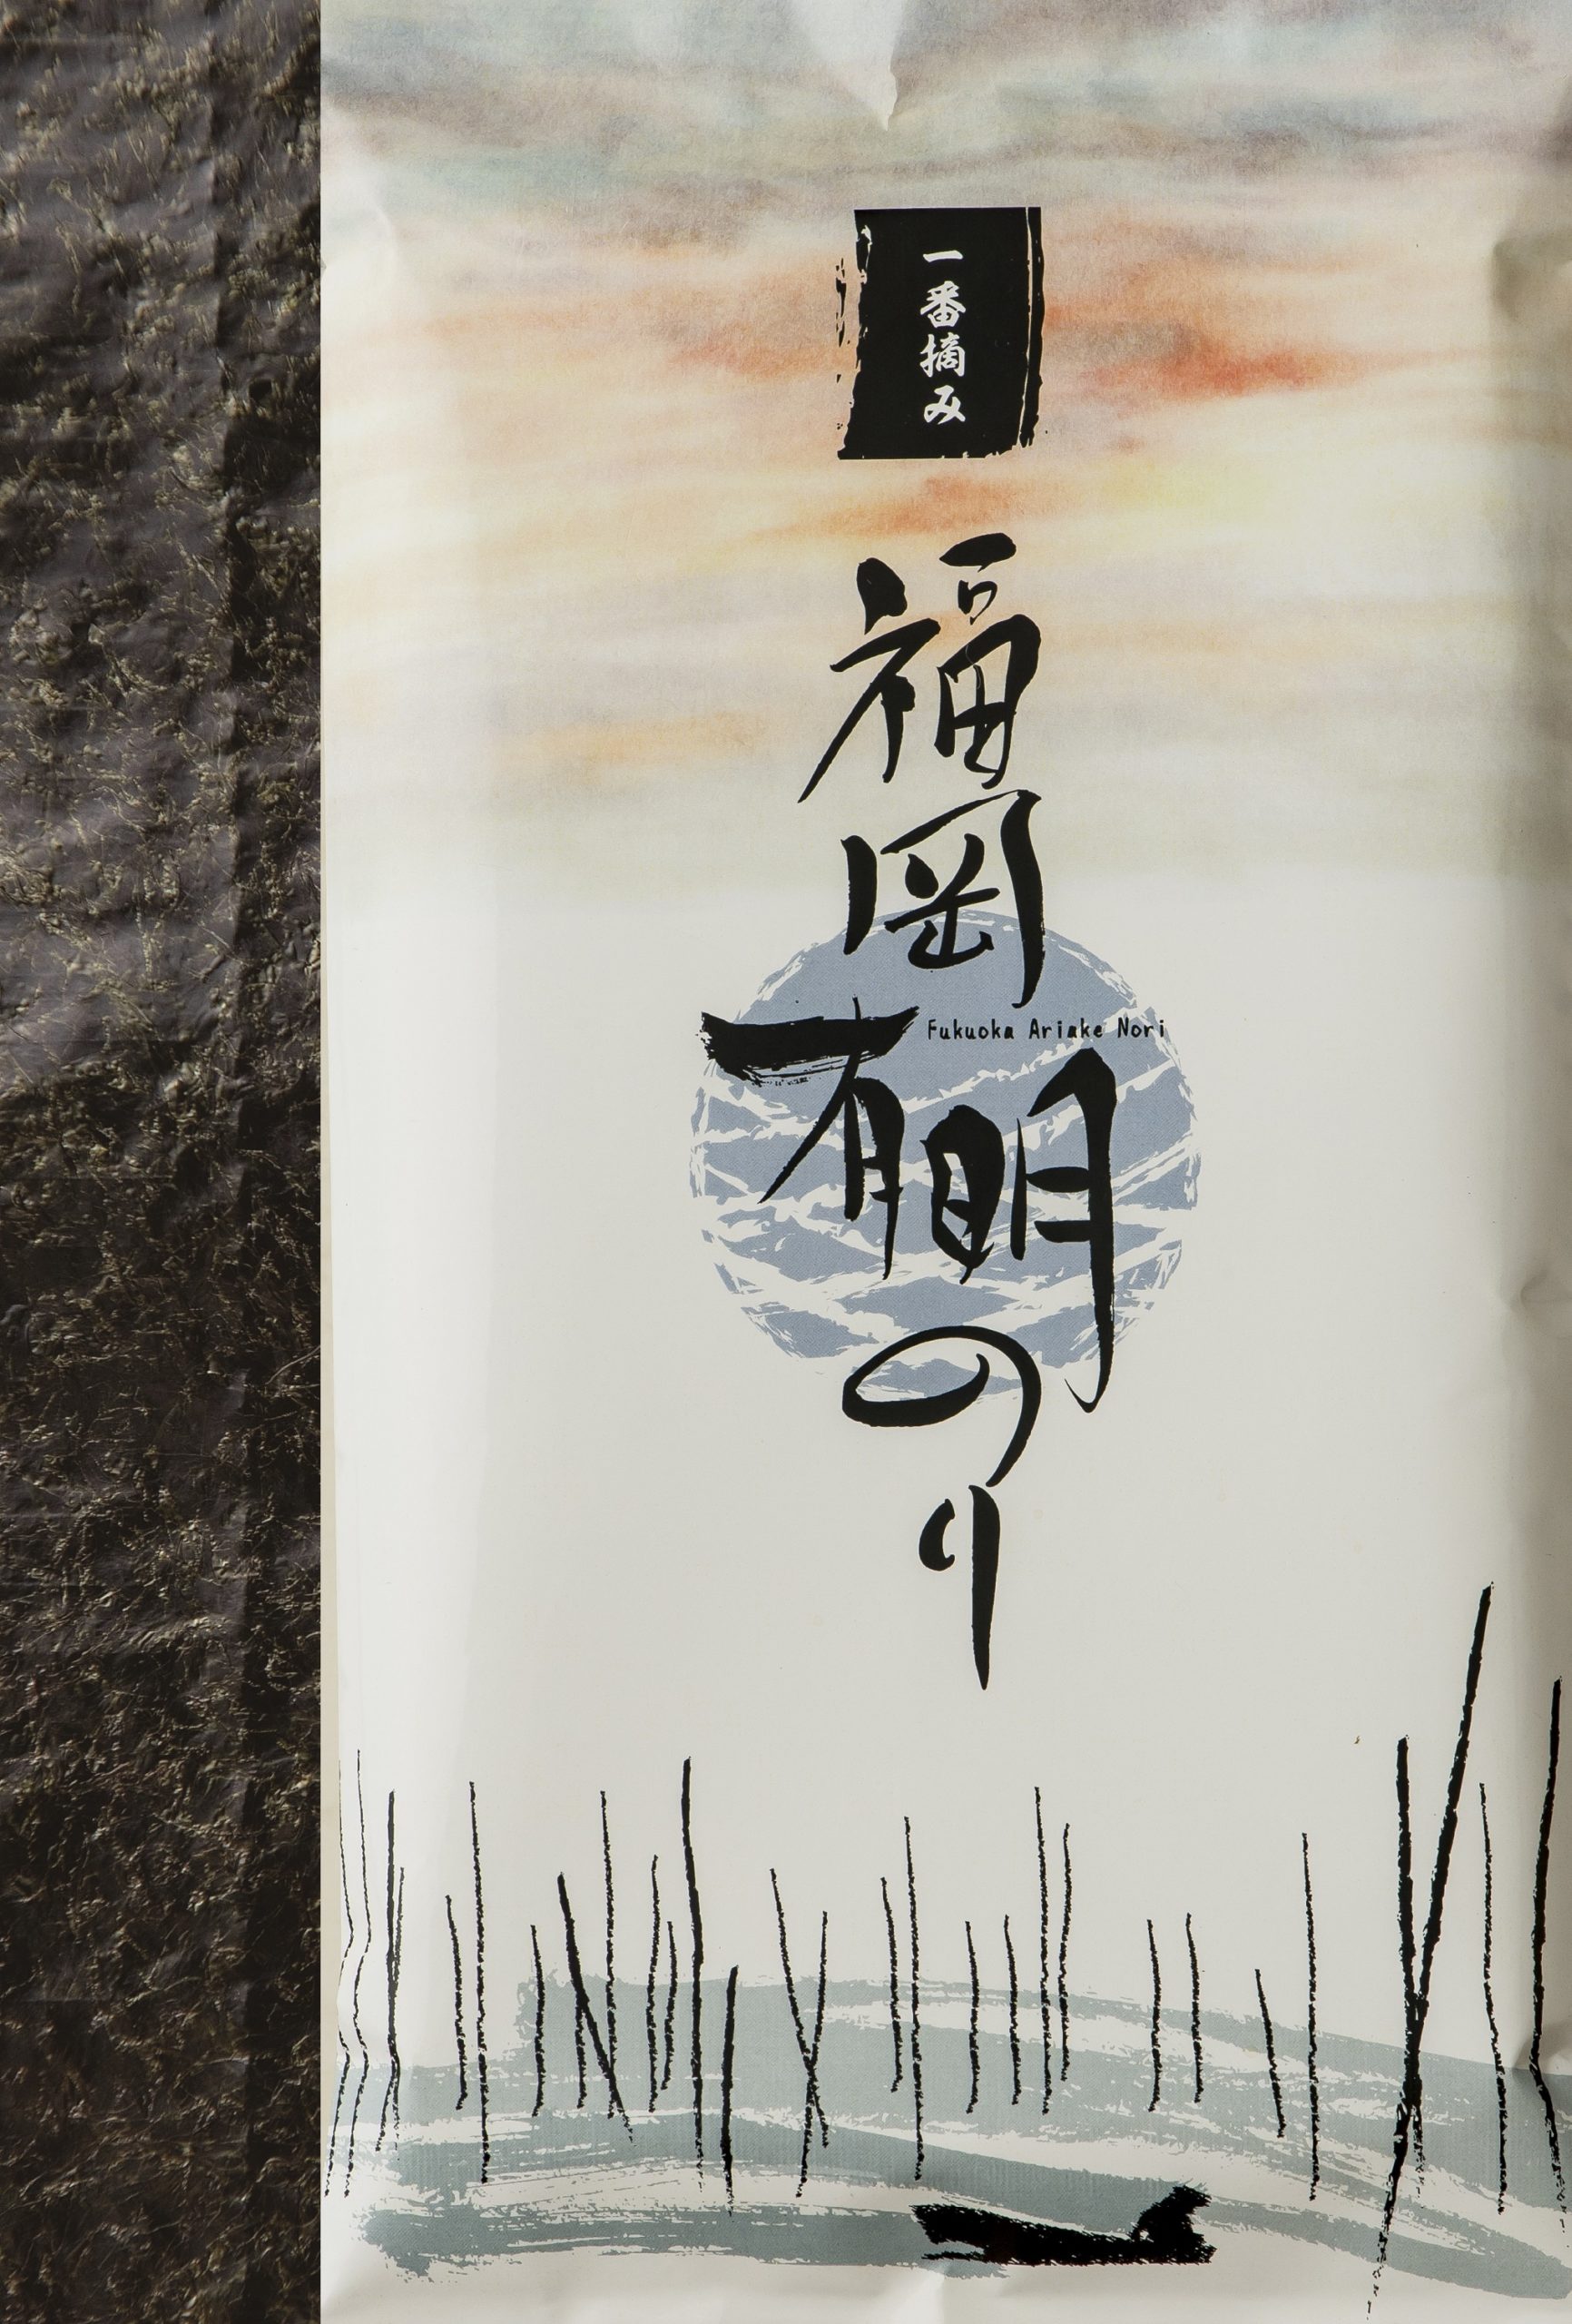 一番摘み
福岡有明のり
Fukuoka Ariake Nori